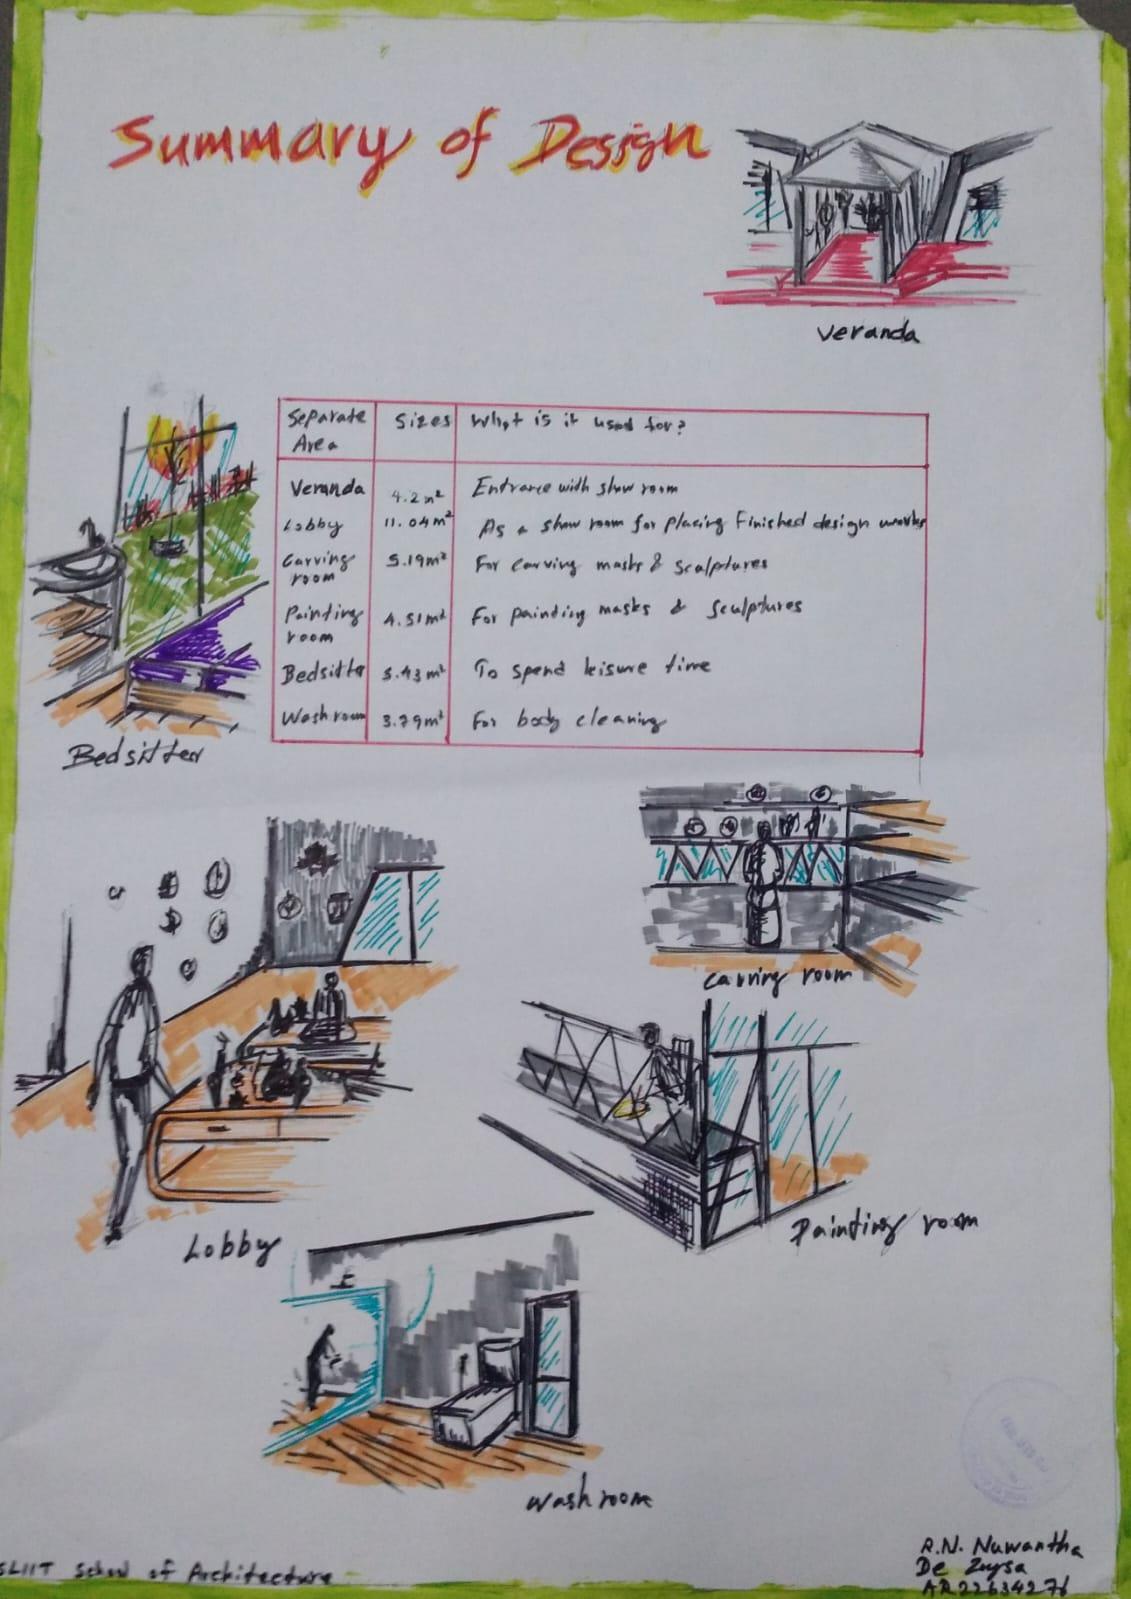 Summary of Design
Veranda
Separate Area | Sizes | What is it used for?
Veranda | 4.2m² | Entrance with show room
Lobby | 11.04m² | As a show room for placing Finished design works
Carving room | 5.19m² | For carving masks & sculptures
Painting room | 4.51m² | For painting masks & sculptures
Bedsitter | 5.43m² | To spend leisure time
Wash room | 3.79m² | For body cleaning
Bedsitter
Carving room
Lobby
Painting room
Wash room
SLIIT School of Architecture
R.N. Nuwantha
De Zoysa
AR22634276